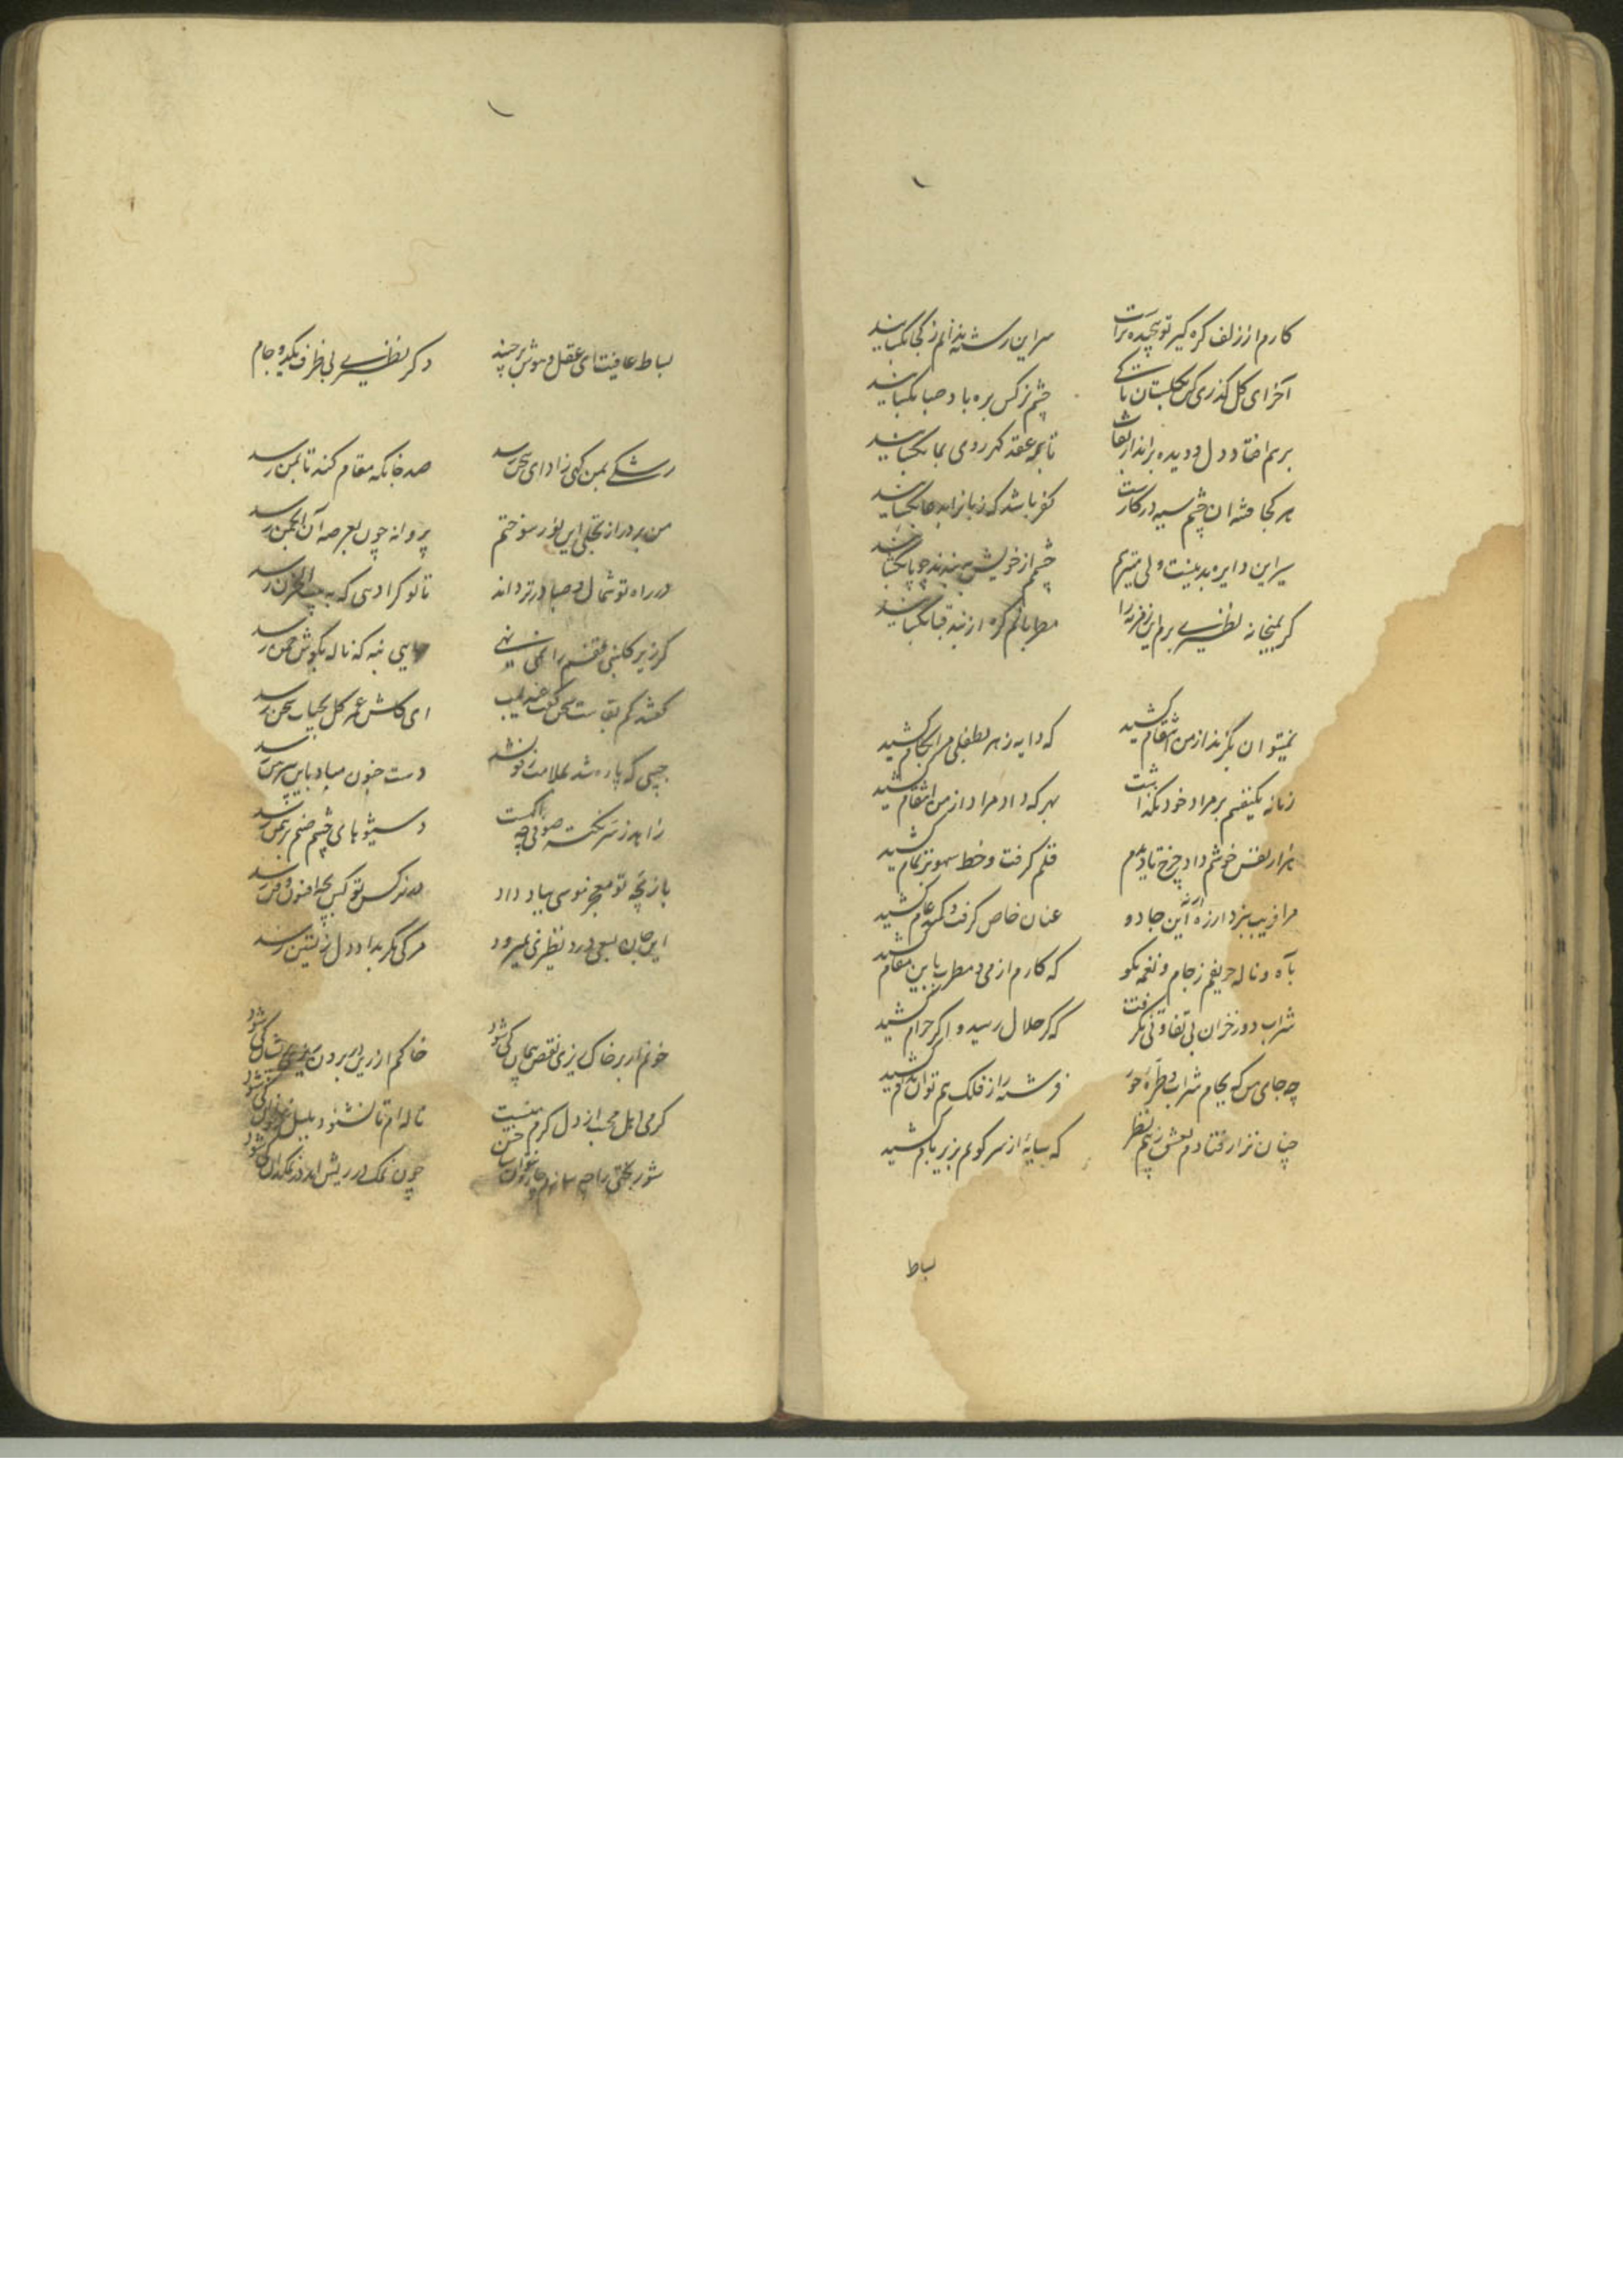 کارم از زلف گره گیر تو پیچیده تر است
سر این رشته ندانم ز کجا بگشایند
آخر ای گل گذری کن بگلستان تا کی
چشم نرگس بره باد صبا بگشایند
برهم افتاد دل و دیده براندار نقاب
تا همه عقد گهر روی نما بگشایند
هر کجا فتنه آن چشم سیه در کارست
کفر باشد که زبان را بدعا بگشایند
سر این دایره بد نیست ولی میترسم
چشمم از خویش ببندند چو پا بگشایند
گر بمیخانه نظیری برم این خرقه را
مطربانم گره از بند قبا بگشایند
نمیتوان بگزند از من انتقام کشید
که دایه زهر بطفلی مرا بکام کشید
زمانه یکنفسم بر مراد خود نگذاشت
بهر که داد مرا داد از من انتقام کشید
هزار نقش خوشم داد چرخ تا دیدم
قلم گرفت و خط سهو بر تمام کشید
مرا فریب نبرد ار ز ره این جادو
عنان خاص گرفت و کمند عام کشید
بآه و ناله حریفم ز جام و نغمه مگو
که کارم از می و مطرب باین مقام کشید
شراب دوزخیان بی تفاوتی نگرفت
که گر حلال رسید و اگر حرام کشید
چه جای من که بجام شراب و طره حور
فرشته را ز فلک هم توان بدام کشید
چنان نزار فتادم بعشق ز بیم نظر
که سایه از سر کویم بزیر بام کشید
بساط
بساط عافیت ای عقل و هوش برچیند
دگر نظیری بی ظرف یکدو جام
رشکی بمن کهی ز ادای سخن رسد
صد جا نگه مقام کند تا بمن رسد
من بر در از تجلی این نور سوختم
پروانه چون بعرصه آن انجمن رسد
در راه تو شمال و صبا در تردد اند
تا بو کرا دهی که به بیت الحزن رسد
گر زیر گلبنی قفسم را نمی نهی
جایی بنه که ناله بگوش چمن رسد
گفتند کم بقاست سخن گفت عندلیب
ای کاش عمر گل بحیات سخن رسد
جیبی که پاره شد بملامت رفو نشد
دست جنون مباد باین پیرهن رسد
زاهد ز سر نکته صوفی چه آگهست
دسیشوهای چشم صنم برهمن رسد
بازیچه تو معجز موسی بباد داد
در نرگس تو کس بچه افسون و فن رسد
این جان بسعی درد نظیری نمیرود
مرگی مگر بداد دل زیستن رسد
خونم ار بر خاک ریزی نقص پیمان کی شود
خاکم ار زین در بردن کی شود
گرمی اهل محبت از دل گرم منست
ناله ام تا نشنود بلبل غزلخوان کی شود
شور بختی را چه سازم
چون نمک در ریش ام نمکدان کی شود